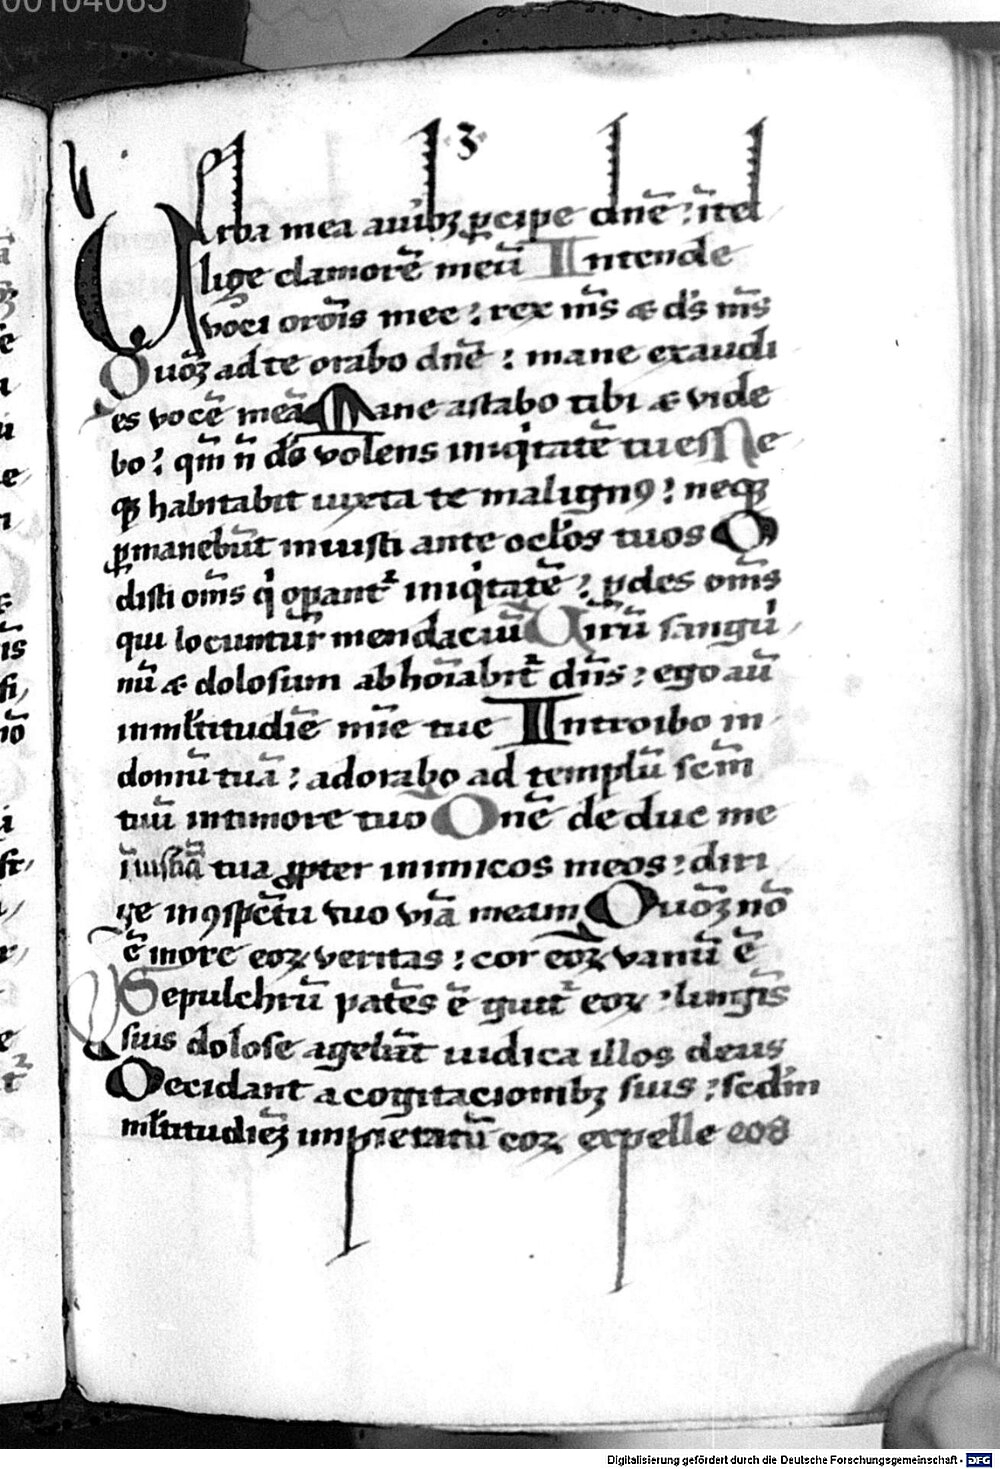 00104065
·3·
Verba mea auribꝫ ꝑcipe dn̄e : ītel
lige clamorē meū Intende
voci orōis mee : rex m̄s ⁊ ds̄ m̄s
Quōꝫ ad te orabo dn̄e : mane exaudi
es vocē meā Mane astabo tibi ⁊ vide
bo : qm̄ n̄ ds̄ volens iniqͥtatē tu es Ne
qꝫ habitabit iuxta te malignꝰ : neqꝫ
ꝑmanebūt iniusti ante ocl̄os tuos O
disti om̄s qͥ oꝑant᷑ iniqͥtatē : ꝑdes om̄s
qui locuntur mendaciū Uirū sangui
nū ⁊ dolosum abhoīabit᷑ dn̄s : ego aū
in ml̄titudīe mīe tue Introibo in
domū tuā : adorabo ad templū scm̄
tuū in timore tuo Dn̄e deduc me
ī iusticiā tua ꝓpter inimicos meos : diri
ge in ꝯspc̄tu tuo viā meam Quōꝫ nō
ē in ore eoꝝ veritas : cor eoꝝ vanū ē
Sepulchrū patēs ē gutt᷑ eoꝝ : linguīs
suis dolose agebāt iudica illos deus
Decidant a cogitacionibꝫ suis : scd̄m
ml̄titudīeꝫ impietatū eoꝝ expelle eos
Digitalisierung gefördert durch die Deutsche Forschungsgemeinschaft - DFG